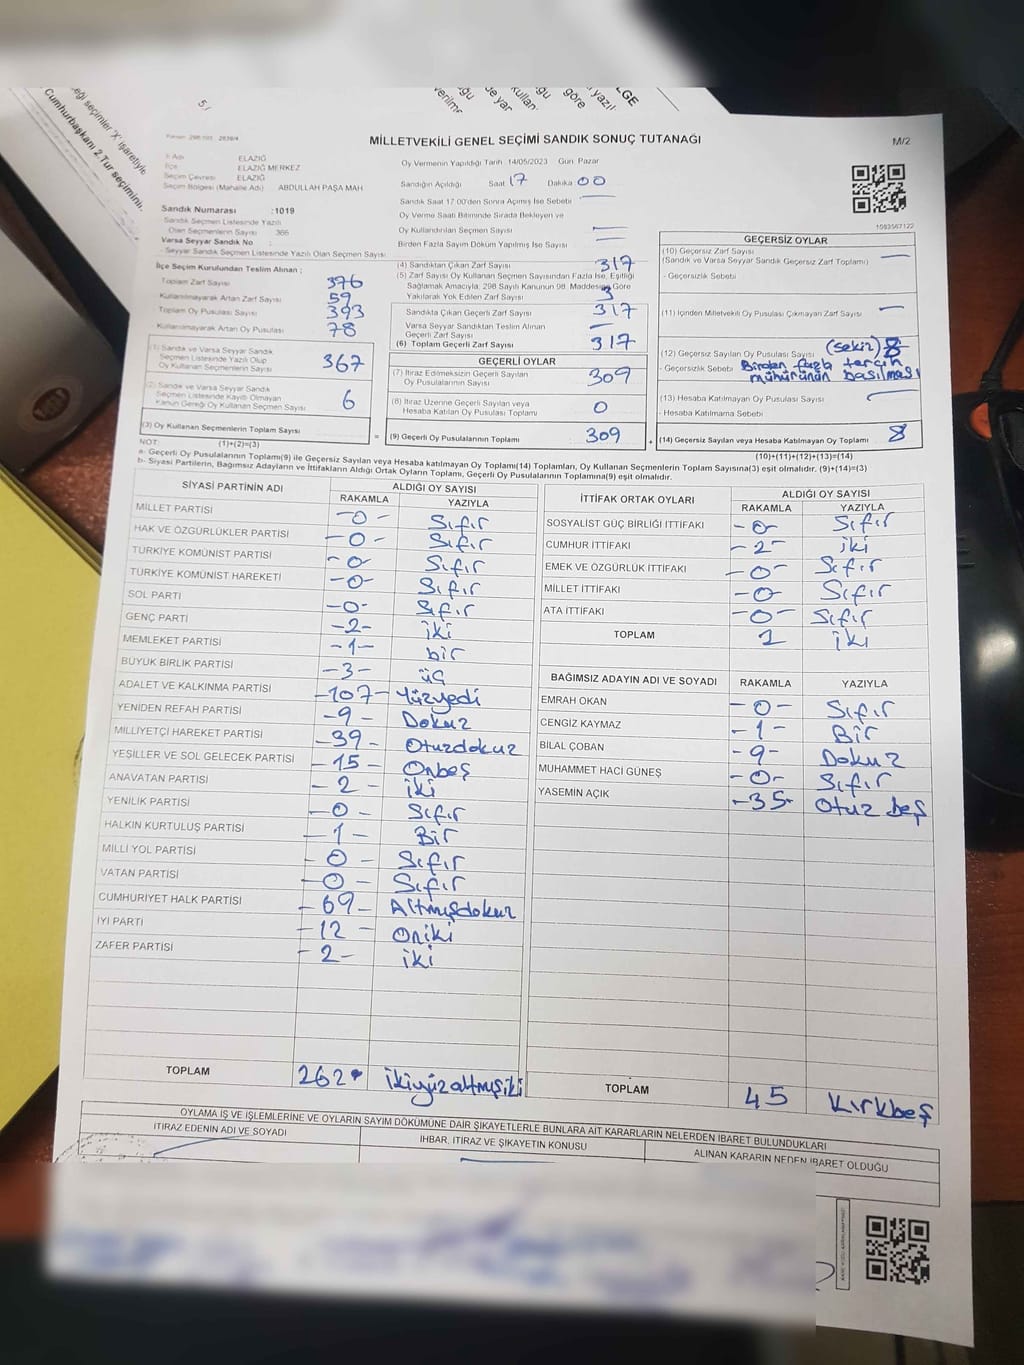 5/
göre
Cumhurbaşkanı 2.Tur seçiminin
MİLLETVEKİLİ GENEL SEÇİMİ SANDIK SONUÇ TUTANAĞI
M/2
İl Adı ELAZIĞ
İlçe ELAZIĞ MERKEZ
Seçim Çevresi ELAZIĞ
Seçim Bölgesi (Mahalle Adı) ABDULLAH PAŞA MAH
Sandık Numarası :1019
Sandık Seçmen Listesinde Yazılı
Olan Seçmenlerin Sayısı 366
Varsa Seyyar Sandık No
- Seyyar Sandık Seçmen Listesinde Yazılı Olan Seçmen Sayısı
Oy Vermenin Yapıldığı Tarih 14/05/2023 Gün Pazar
Sandığın Açıldığı Saat 17 Dakika 00
Sandık Saat 17.00'den Sonra Açılmış İse Sebebi
Oy Verme Saati Bitiminde Sırada Bekleyen ve
Oy Kullandırılan Seçmen Sayısı
Birden Fazla Sayım Döküm Yapılmış İse Sayısı
1083567122
İlçe Seçim Kurulundan Teslim Alınan ;
Toplam Zarf Sayısı 376
Kullanılmayarak Artan Zarf Sayısı 59
Toplam Oy Pusulası Sayısı 393
Kullanılmayarak Artan Oy Pusulası 78
(1) Sandık ve Varsa Seyyar Sandık
Seçmen Listesinde Yazılı Olup
Oy Kullanan Seçmenlerin Sayısı 367
(2) Sandık ve Varsa Seyyar Sandık
Seçmen Listesinde Kayıtlı Olmayan
Kanun Gereği Oy Kullanan Seçmen Sayısı 6
(3) Oy Kullanan Seçmenlerin Toplam Sayısı
(1)+(2)=(3)
(4) Sandıktan Çıkan Zarf Sayısı 317
(5) Zarf Sayısı Oy Kullanan Seçmen Sayısından Fazla İse, Eşitliği
Sağlamak Amacıyla, 298 Sayılı Kanunun 98. Maddesine Göre
Yakılarak Yok Edilen Zarf Sayısı 3
Sandıkta Çıkan Geçerli Zarf Sayısı 317
Varsa Seyyar Sandıktan Teslim Alınan
Geçerli Zarf Sayısı
(6) Toplam Geçerli Zarf Sayısı 317
GEÇERLİ OYLAR
(7) İtiraz Edilmeksizin Geçerli Sayılan
Oy Pusulalarının Sayısı 309
(8) İtiraz Üzerine Geçerli Sayılan veya
Hesaba Katılan Oy Pusulası Toplamı 0
= (9) Geçerli Oy Pusulalarının Toplamı 309 +
GEÇERSİZ OYLAR
(10) Geçersiz Zarf Sayısı
(Sandık ve Varsa Seyyar Sandık Geçersiz Zarf Toplamı)
- Geçersizlik Sebebi
(11) İçinden Milletvekili Oy Pusulası Çıkmayan Zarf Sayısı
(12) Geçersiz Sayılan Oy Pusulası Sayısı (Sekiz) 8
- Geçersizlik Sebebi Birden fazla tercih
mühürünün basılması
(13) Hesaba Katılmayan Oy Pusulası Sayısı
- Hesaba Katılmama Sebebi
(14) Geçersiz Sayılan veya Hesaba Katılmayan Oy Toplamı 8
(10)+(11)+(12)+(13)=(14)
NOT:
a- Geçerli Oy Pusulalarının Toplamı(9) ile Geçersiz Sayılan veya Hesaba katılmayan Oy Toplamı(14) Toplamları, Oy Kullanan Seçmenlerin Toplam Sayısına(3) eşit olmalıdır. (9)+(14)=(3)
b- Siyasi Partilerin, Bağımsız Adayların ve İttifakların Aldığı Ortak Oyların Toplamı, Geçerli Oy Pusulalarının Toplamına(9) eşit olmalıdır.
SİYASİ PARTİNİN ADI ALDIĞI OY SAYISI
RAKAMLA YAZIYLA
MİLLET PARTİSİ -0- Sıfır
HAK VE ÖZGÜRLÜKLER PARTİSİ -0- Sıfır
TÜRKİYE KOMÜNİST PARTİSİ -0- Sıfır
TÜRKİYE KOMÜNİST HAREKETİ -0- Sıfır
SOL PARTİ -0- Sıfır
GENÇ PARTİ -2- iki
MEMLEKET PARTİSİ -1- bir
BÜYÜK BİRLİK PARTİSİ -3- üç
ADALET VE KALKINMA PARTİSİ -107- Yüzyedi
YENİDEN REFAH PARTİSİ -9- Dokuz
MİLLİYETÇİ HAREKET PARTİSİ -39- Otuzdokuz
YEŞİLLER VE SOL GELECEK PARTİSİ -15- Onbeş
ANAVATAN PARTİSİ -2- iki
YENİLİK PARTİSİ -0- Sıfır
HALKIN KURTULUŞ PARTİSİ -1- Bir
MİLLİ YOL PARTİSİ -0- Sıfır
VATAN PARTİSİ -0- Sıfır
CUMHURİYET HALK PARTİSİ -69- Altmışdokuz
İYİ PARTİ -12- Oniki
ZAFER PARTİSİ -2- iki
TOPLAM 262 ikiyüzaltmışiki
İTTİFAK ORTAK OYLARI ALDIĞI OY SAYISI
RAKAMLA YAZIYLA
SOSYALİST GÜÇ BİRLİĞİ İTTİFAKI -0- Sıfır
CUMHUR İTTİFAKI -2- iki
EMEK VE ÖZGÜRLÜK İTTİFAKI -0- Sıfır
MİLLET İTTİFAKI -0- Sıfır
ATA İTTİFAKI -0- Sıfır
TOPLAM 2 iki
BAĞIMSIZ ADAYIN ADI VE SOYADI RAKAMLA YAZIYLA
EMRAH OKAN -0- Sıfır
CENGİZ KAYMAZ -1- Bir
BİLAL ÇOBAN -9- Dokuz
MUHAMMET HACI GÜNEŞ -0- Sıfır
YASEMİN AÇIK -35- Otuz beş
TOPLAM 45 Kırkbeş
OYLAMA İŞ VE İŞLEMLERİNE VE OYLARIN SAYIM DÖKÜMÜNE DAİR ŞİKAYETLERLE BUNLARA AİT KARARLARIN NELERDEN İBARET BULUNDUKLARI
İTİRAZ EDENİN ADI VE SOYADI İHBAR, İTİRAZ VE ŞİKAYETİN KONUSU ALINAN KARARIN NEDEN İBARET OLDUĞU